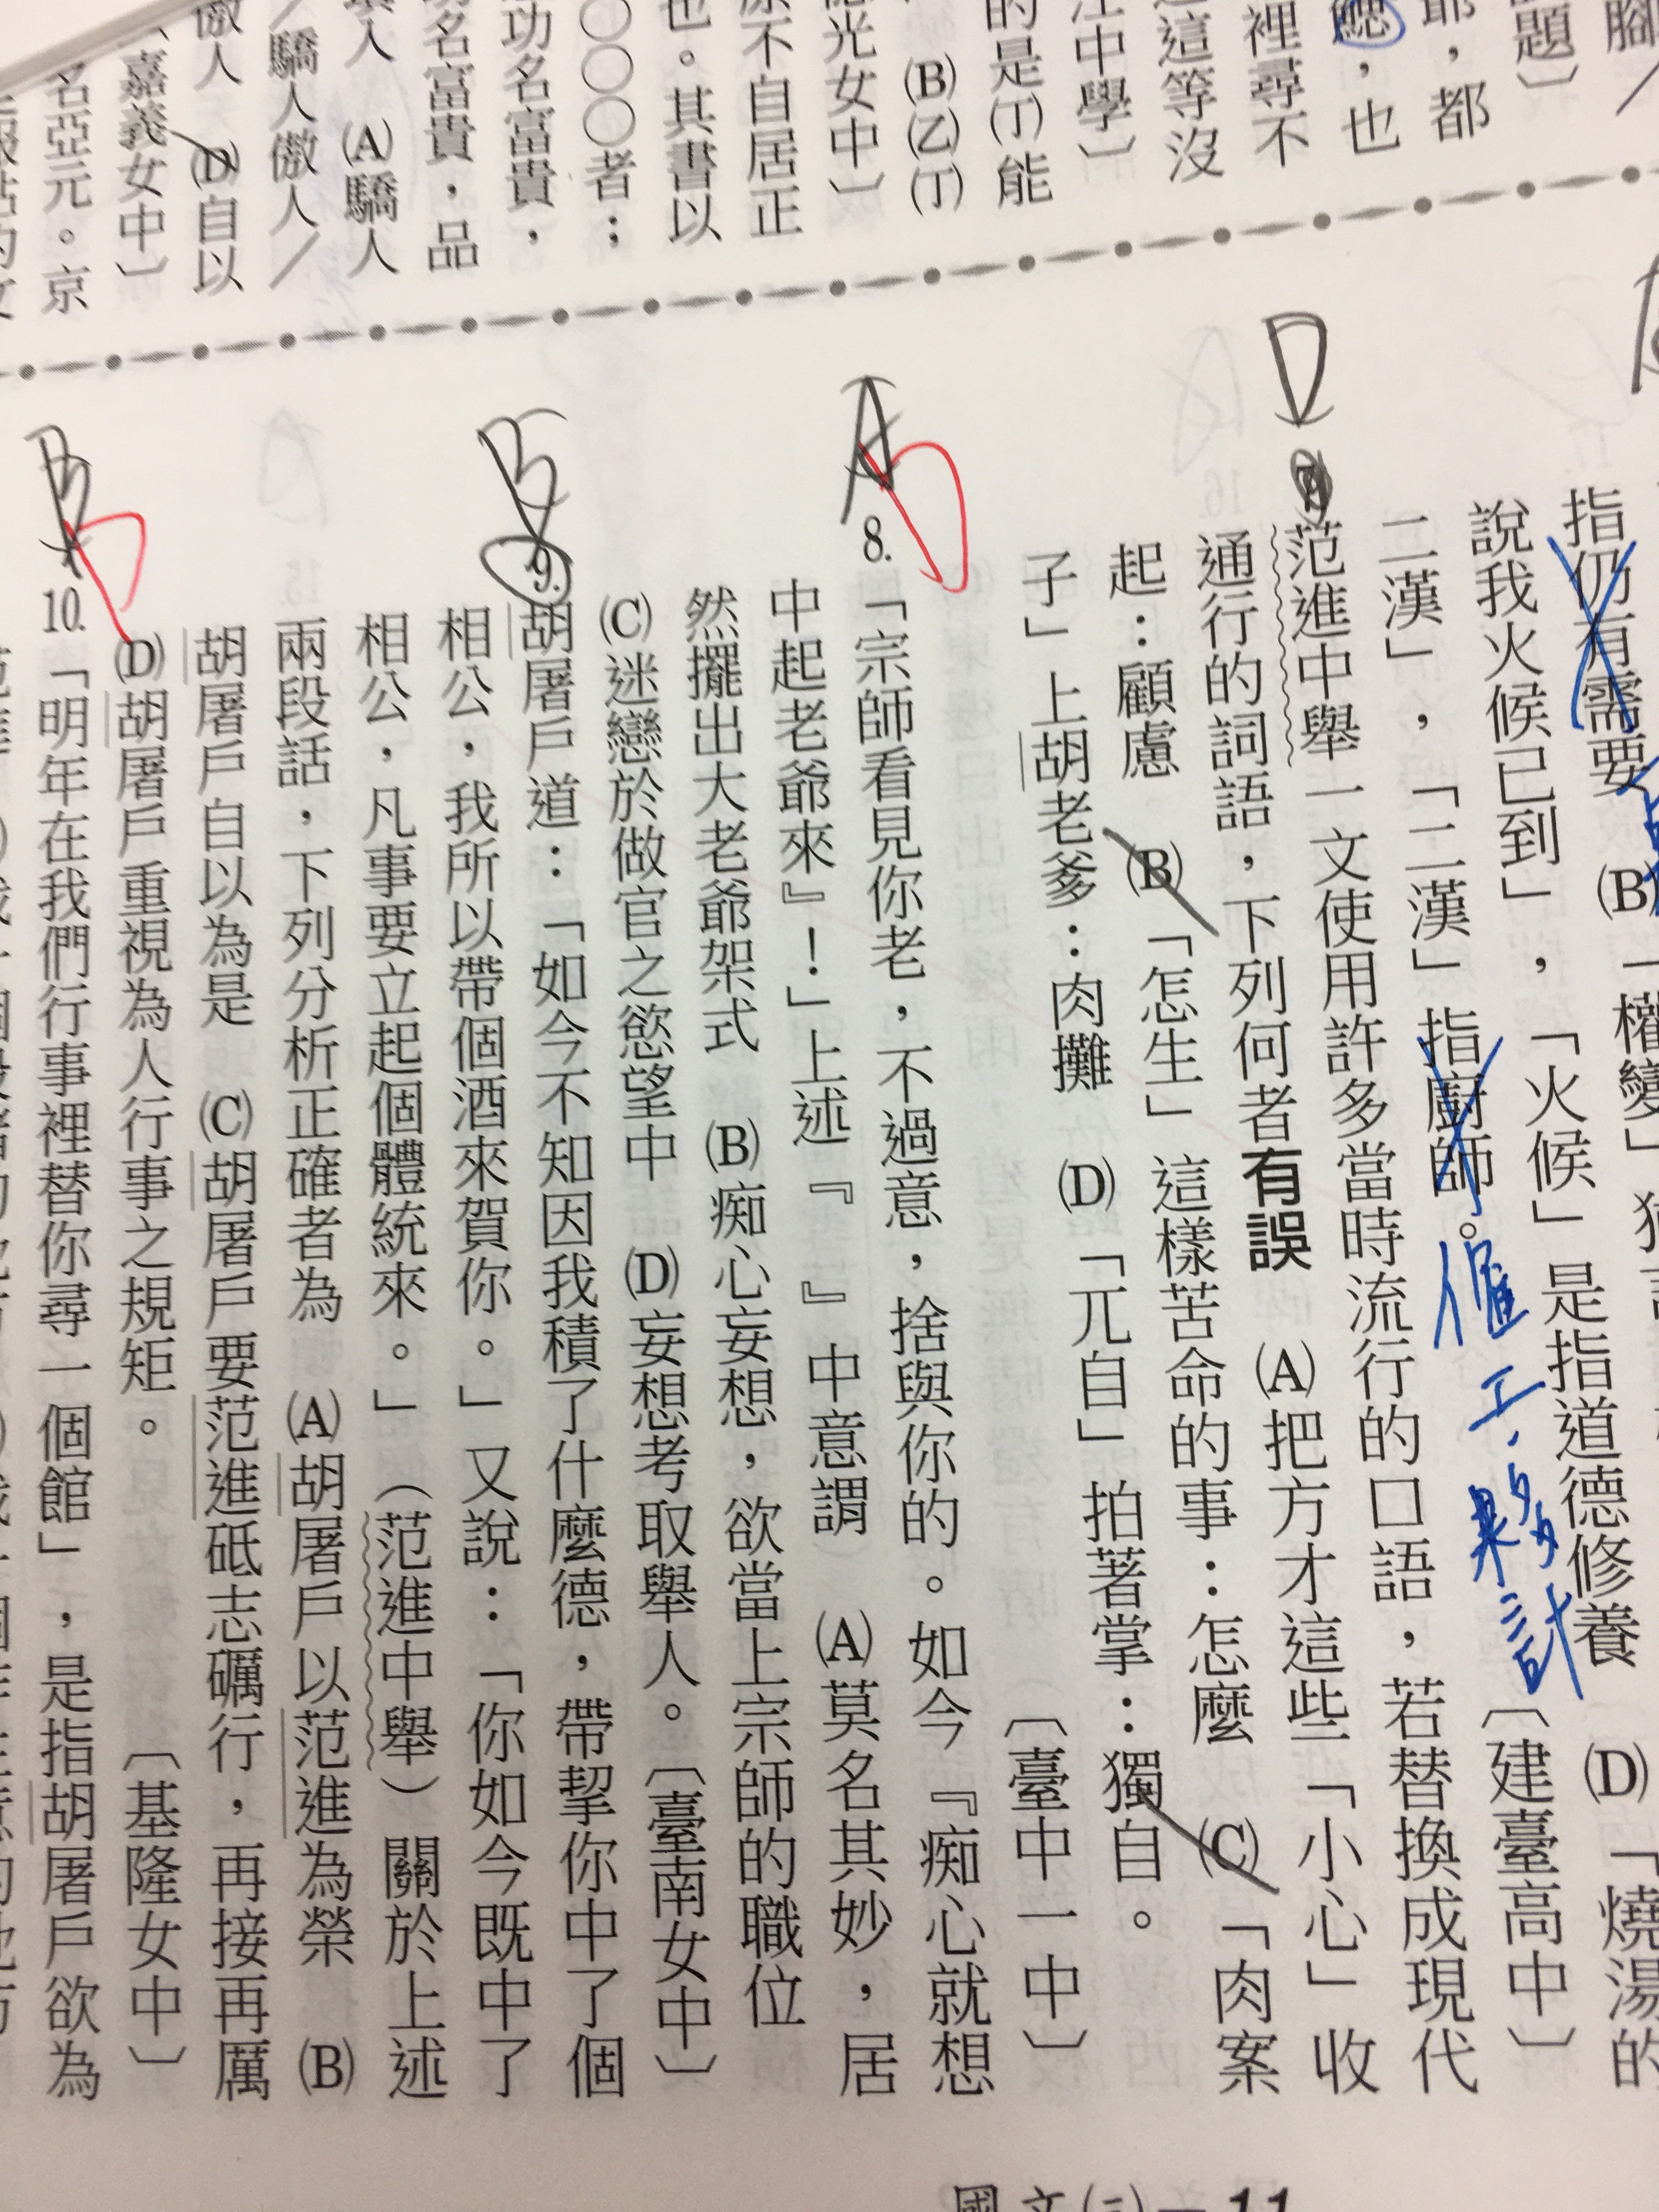 腳／
題〕
耶，都
鰓，也
裡尋不
這等沒
江中學〕
的是(丁)能
(B)(乙)(丁)
德光女中〕
原不自居正
也。其書以
○○○者；
功名富貴，
功名富貴，品
填入 (A)驕人
／驕人傲人／
傲人 (D)自以
〔嘉義女中〕
名亞元。京
(D)「燒湯的
指仍有需要 (B)「權變」
說我火候已到」，「火候」是指道德修養
二漢」，「二漢」指廚師。 〔建臺高中〕
僱工、夥計
D
7. 范進中舉一文使用許多當時流行的口語，若替換成現代
通行的詞語，下列何者有誤 (A)把方才這些「小心」收
起：顧慮 (B)「怎生」這樣苦命的事：怎麼 (C)「肉案
子」上胡老爹：肉攤 (D)「兀自」拍著掌：獨自。
〔臺中一中〕
A
D
8. 「宗師看見你老，不過意，捨與你的。如今『痴心就想
中起老老爺來』！」上述『 』中意謂 (A)莫名其妙，居
然擺出大老爺架式 (B)痴心妄想，欲當上宗師的職位
(C)迷戀於做官之慾望中 (D)妄想考取舉人。〔臺南女中〕
B
9. 胡屠戶道：「如今不知因我積了什麼德，帶挈你中了個
相公，我所以帶個酒來賀你。」又說：「你如今既中了
相公，凡事要立起個體統來。」（范進中舉）關於上述
兩段話，下列分析正確者為 (A)胡屠戶以范進為榮 (B)
胡屠戶自以為是 (C)胡屠戶要范進砥志礪行，再接再厲
(D)胡屠戶重視為人行事之規矩。 〔基隆女中〕
B
10. 「明年在我們行事裡替你尋一個館」，是指胡屠戶欲為
國文(三)－11